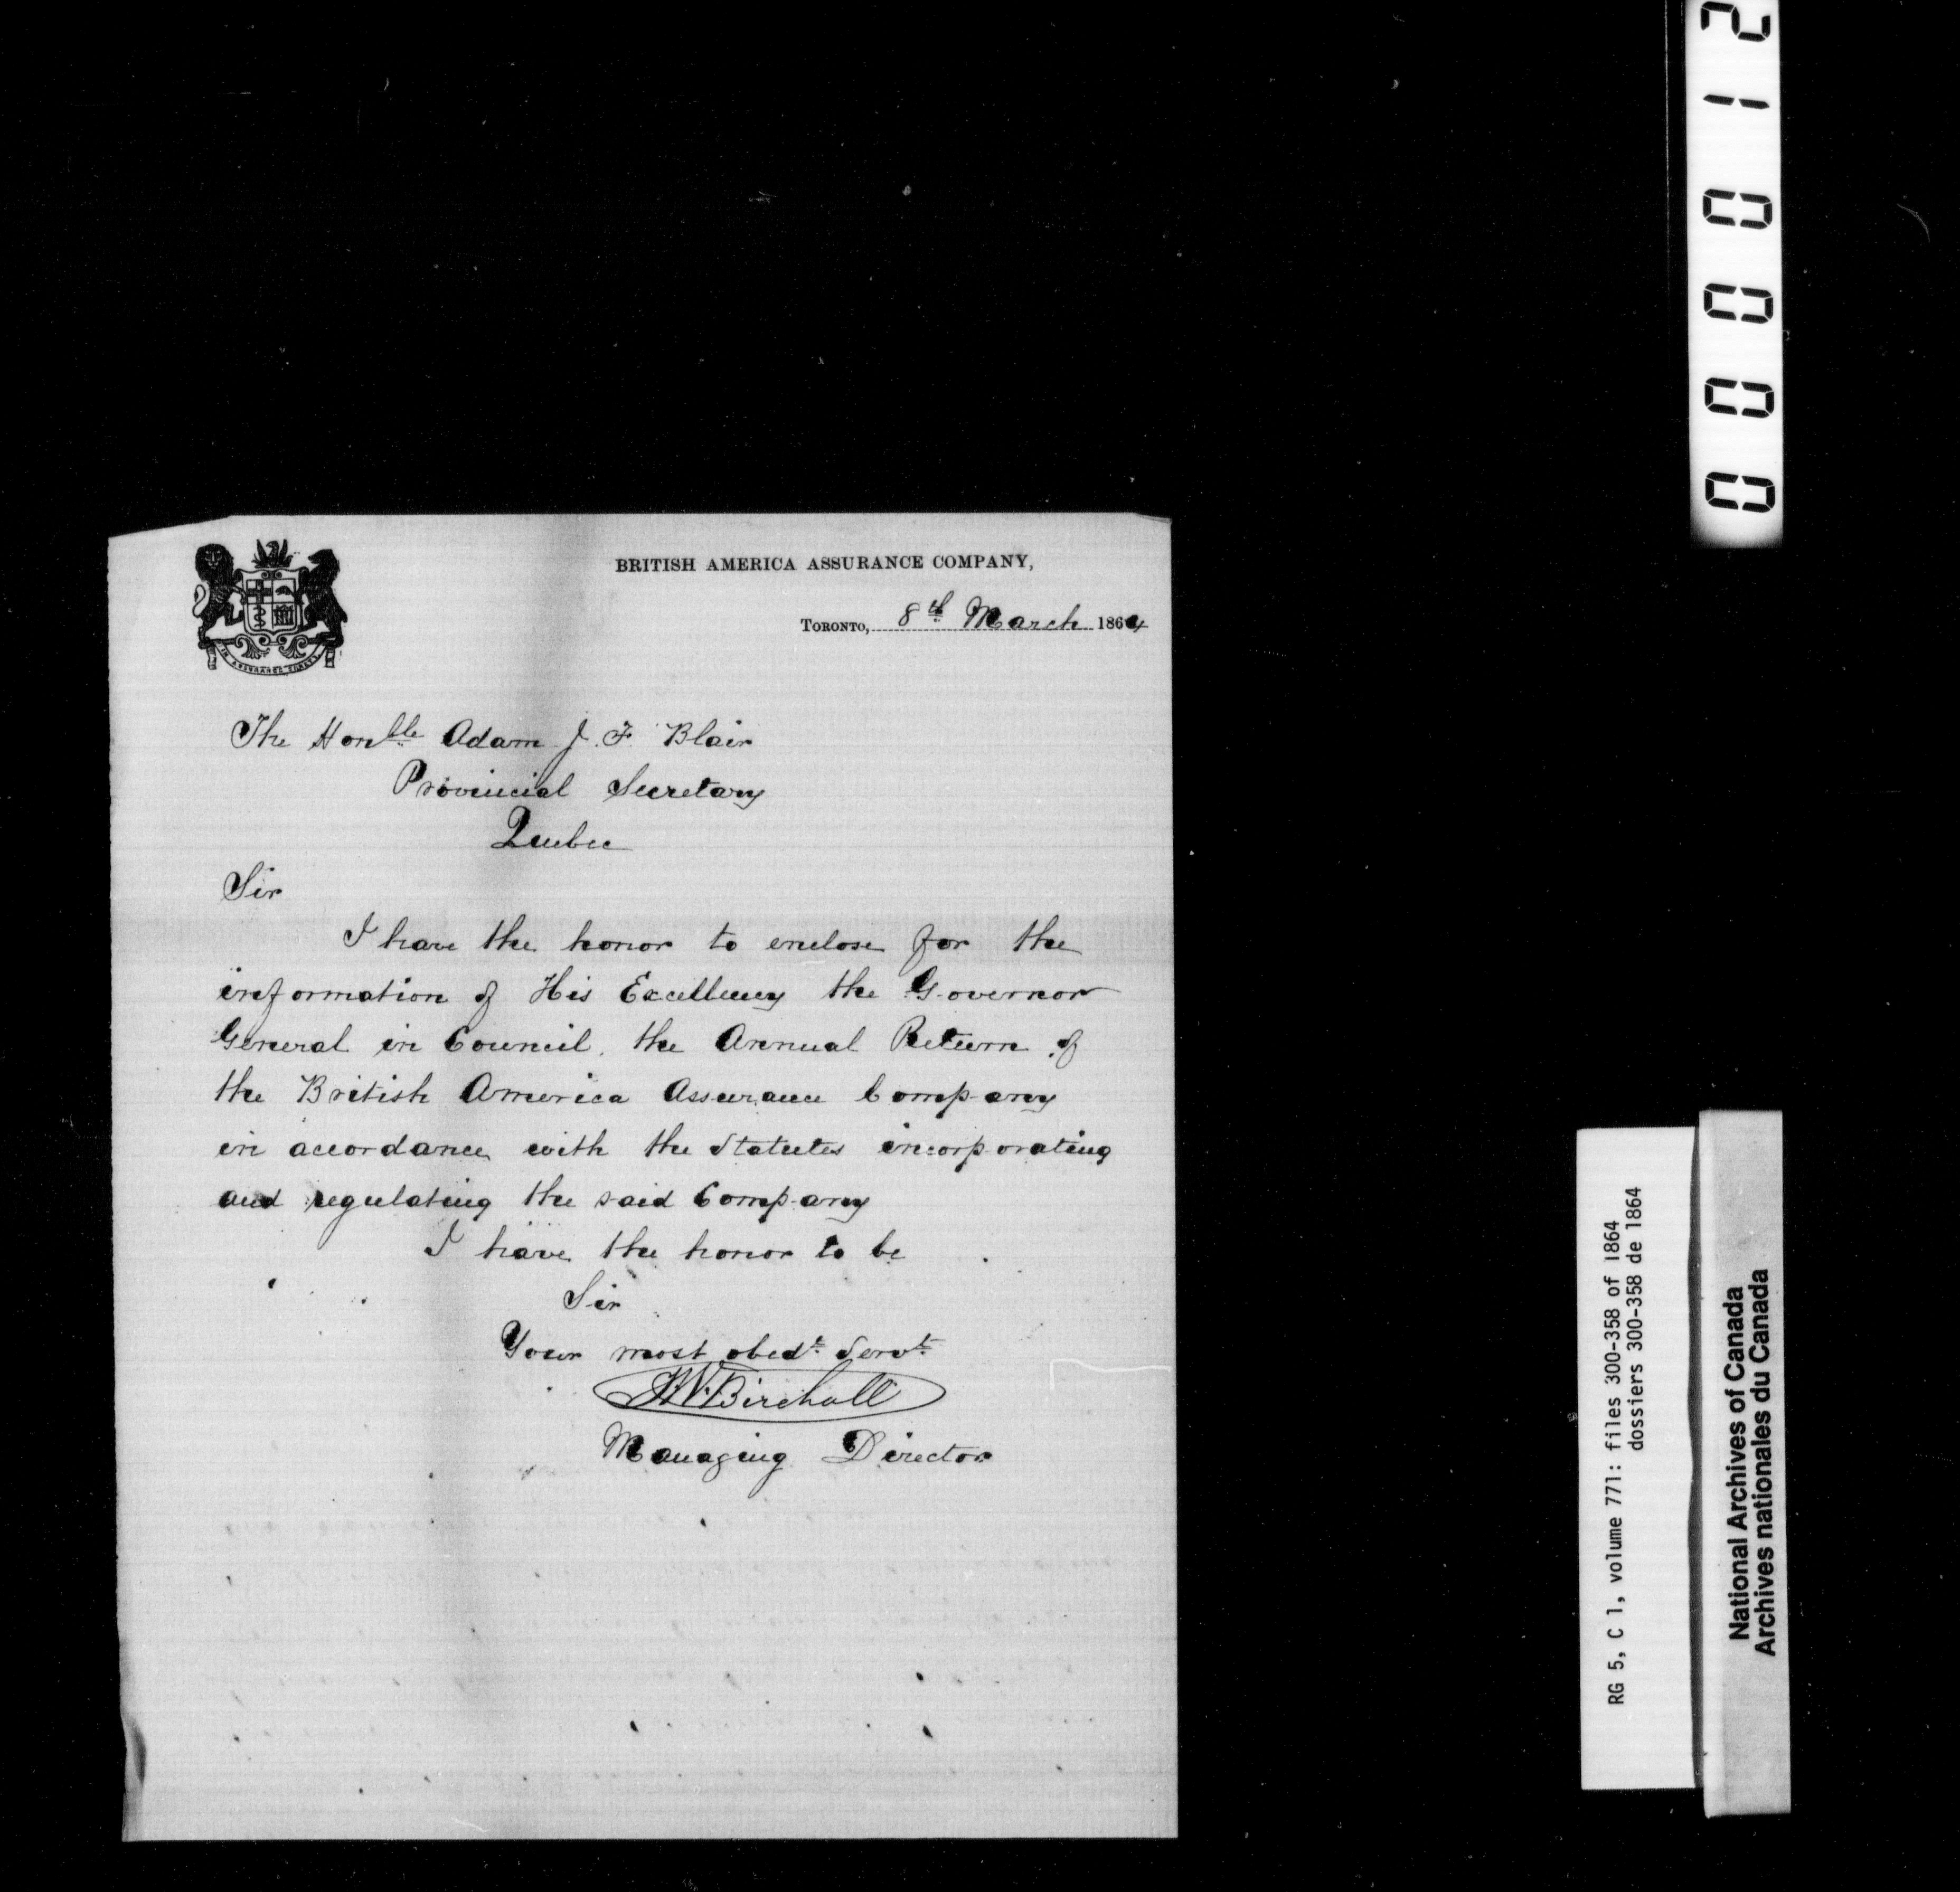 BRITISH AMERICA ASSURANCE COMPANY,
TORONTO, 8th March 1864
The Honble Adam J. F. Blair
Provincial Secretary
Quebec
Sir
I have the honor to enclose for the
information of His Excellency the Governor
General in Council, the Annual Return of
the British America Assurance Company
in accordance with the Statutes incorporating
and regulating the said Company
I have the honor to be
Sir
Your most obedt Servt
T.W. Birchall
Managing Director
000012
RG 5, C 1, volume 771: files 300-358 of 1864
dossiers 300-358 de 1864
National Archives of Canada
Archives nationales du Canada